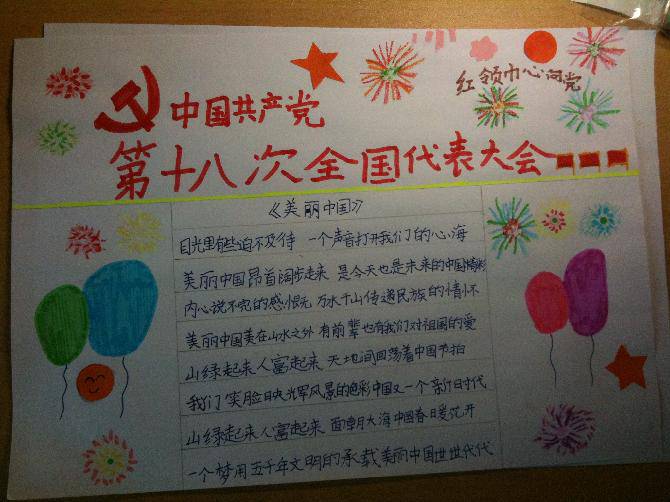 红领巾心向党
中国共产党
第十八次全国代表大会
《美丽中国》
目光里有些迫不及待 一个声音打开我们的心海
美丽中国昂首阔步走来 是今天也是未来的中国精彩
内心说不完的感慨 万水千山传递民族的情怀
美丽中国美在山水之外 有前辈也有我们对祖国的爱
山绿起来人富起来 天地间回荡着中国节拍
我们笑脸日映光军风景的色彩中国又一个新时代
山绿起来人富起来 面朝大海中国春日爱花开
一个梦用五千年文明的承载美丽中国世世代代